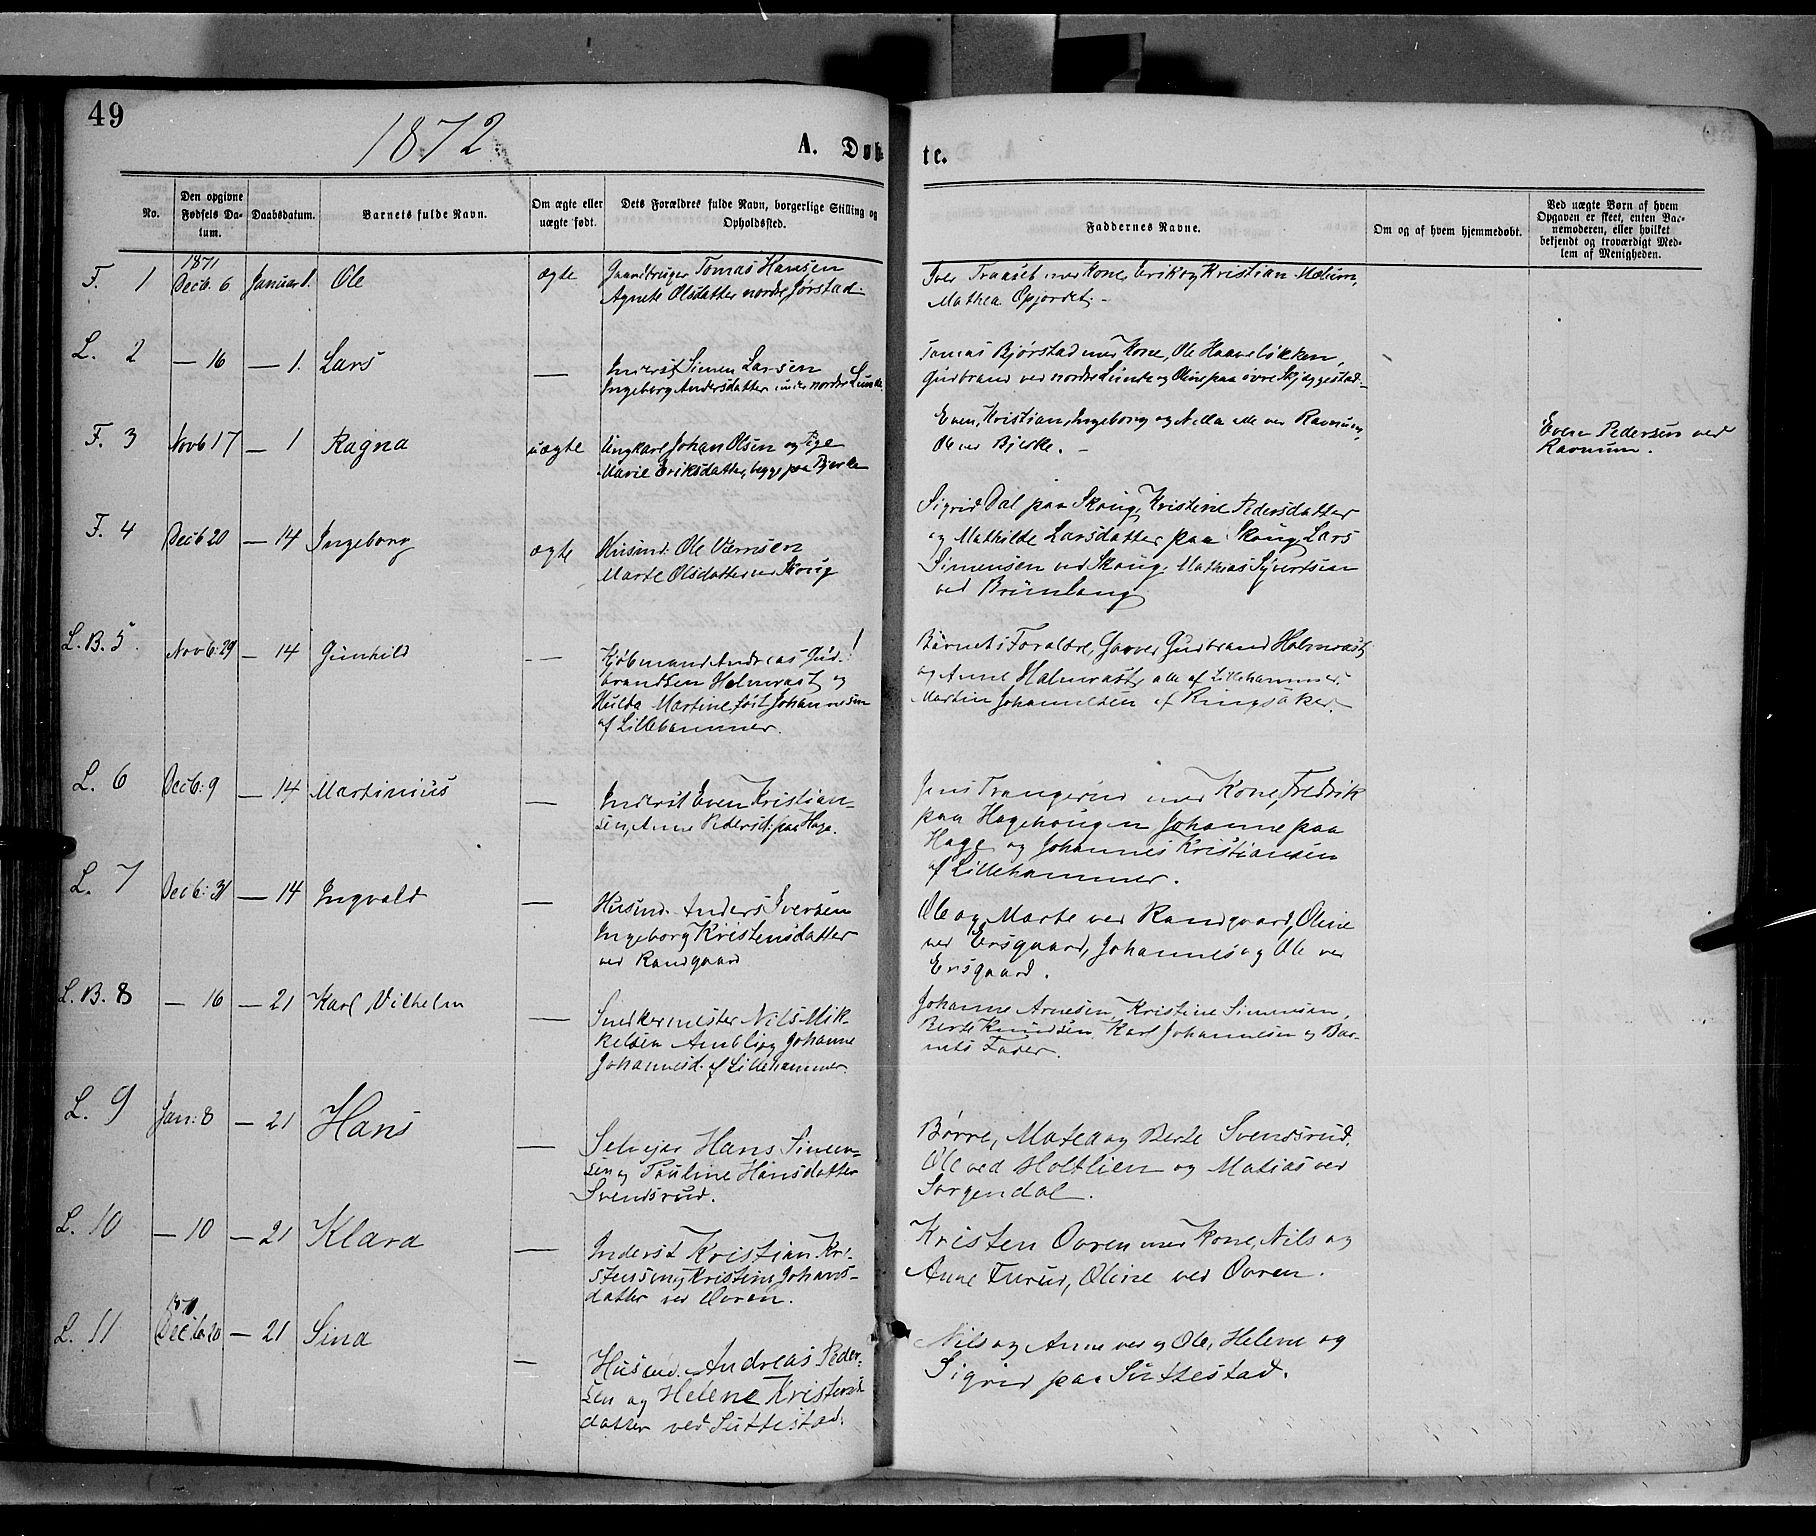 49
1872
A. Døb
te.
No.
Den opgivne Fødsels Da-
tum.
Daabsdatum.
Barnets fulde Navn.
Om ægte eller
uægte født.
Dets Forældres fulde Navn, borgerlige Stilling og
Opholdssted.
Faddernes Navne.
Om og af hvem hjemmedøbt.
Ved uægte Børn af hvem
Opgaven er skeet, enten Bar-
nemoderen, eller hvilket
bekjendt og troværdigt Med-
lem af Menigheden.
F. 1
1871
Decb. 6
Januar 1.
Ole
ægte
Gaardbruger Tomas Hansen
Agnete Olsdatter nordre Jørstad.
Iver Traaset med Kone, Erik og Kristian Mælum,
Mathea Opjordet.
L. 2
— 16
— 1.
Lars
—
Inderst Simen Larsen
Ingeborg Andersdatter under nordre Lunde
Tomas Bjørstad med Kone, Ole Haaveløkken,
Gudbrand ved nordre Lunde og Oline paa øvre Skjæggestad.
F. 3
Novb 17
— 1
Ragna
uægte
Ungkarl Johan Olsen og Pige
Marie Eriksdatter, begge paa Bjerke
Even, Kristian, Ingeborg og Nella alle ved Ravnum,
Ole ved Bjerke.
Even Pedersen ved
Ravnum.
F. 4
Decb 20
— 14
Ingeborg
ægte
Husmd: Ole
Marte Olsdatter ved Skoug
Sigrid Dal paa Skoug, Kristine Pedersdatter
og Mathilde Larsdatter paa Skoug, Lars
Simensen ved Skoug, Mathias Syvertsen
ved
L. B. 5
Novb: 29
— 14
Gunhild
—
Kjøbmand Andreas Gud-
brandsen Holmrast og
Hulda Martine født Johannesen
af Lillehammer.
Barnets Forældre, Garver Gudbrand Holmrast
og Anne Holmrast, alle af Lillehammer,
Martin Johannesen af Ringsaker.
L. 6
Decb: 9
— 14
Martinius
—
Inderst Even Kristian-
sen, Anne Pedersd: paa Hage.
Jens Trangerud med Kone, Fredrik
paa Hagehougen Johanne paa
Hage og Johannes Kristiansen
af Lillehammer.
L. 7
Decb: 31
— 14
Ingvald
—
Husmd. Anders Iversen
Ingeborg Kristensdatter
ved Randgaard
Ole og Marte ved Randgaard, Oline
ved Ersgaard, Johannes og Ole ved
Ersgaard.
L. B. 8
— 16
— 21
Karl Vilhelm
—
Snedkermester Nils Mik-
kelsen Ambli og Johanne
Johannesd. af Lillehammer.
Johanne Arnesen, Kristine Simensen,
Berte Knudsen, Karl Johannesen og Bar-
nets Fader.
L. 9
Jan: 8
— 21
Hans
—
Selveier Hans Simen-
sen og Pauline Hansdatter
Svendsrud.
Børre, Matea og Berte Svendsrud,
Ole ved Holtlien og Matias ved
Sorgendal.
L. 10
— 10
— 21
Klara
—
Inderst Kristian Kri-
stensen og Kristine Johans-
datter ved Ovren.
Kristen Ovren med Kone, Nils og
Anne Furud, Oline ved Ovren.
L. 11
Decb: 20
— 21
Sina
—
Husmd. Andreas Peder-
sen og Helene Kristens
datter ved Suttestad.
Nils og Anne ved og Ole, Helene og
Sigrid paa Suttestad.